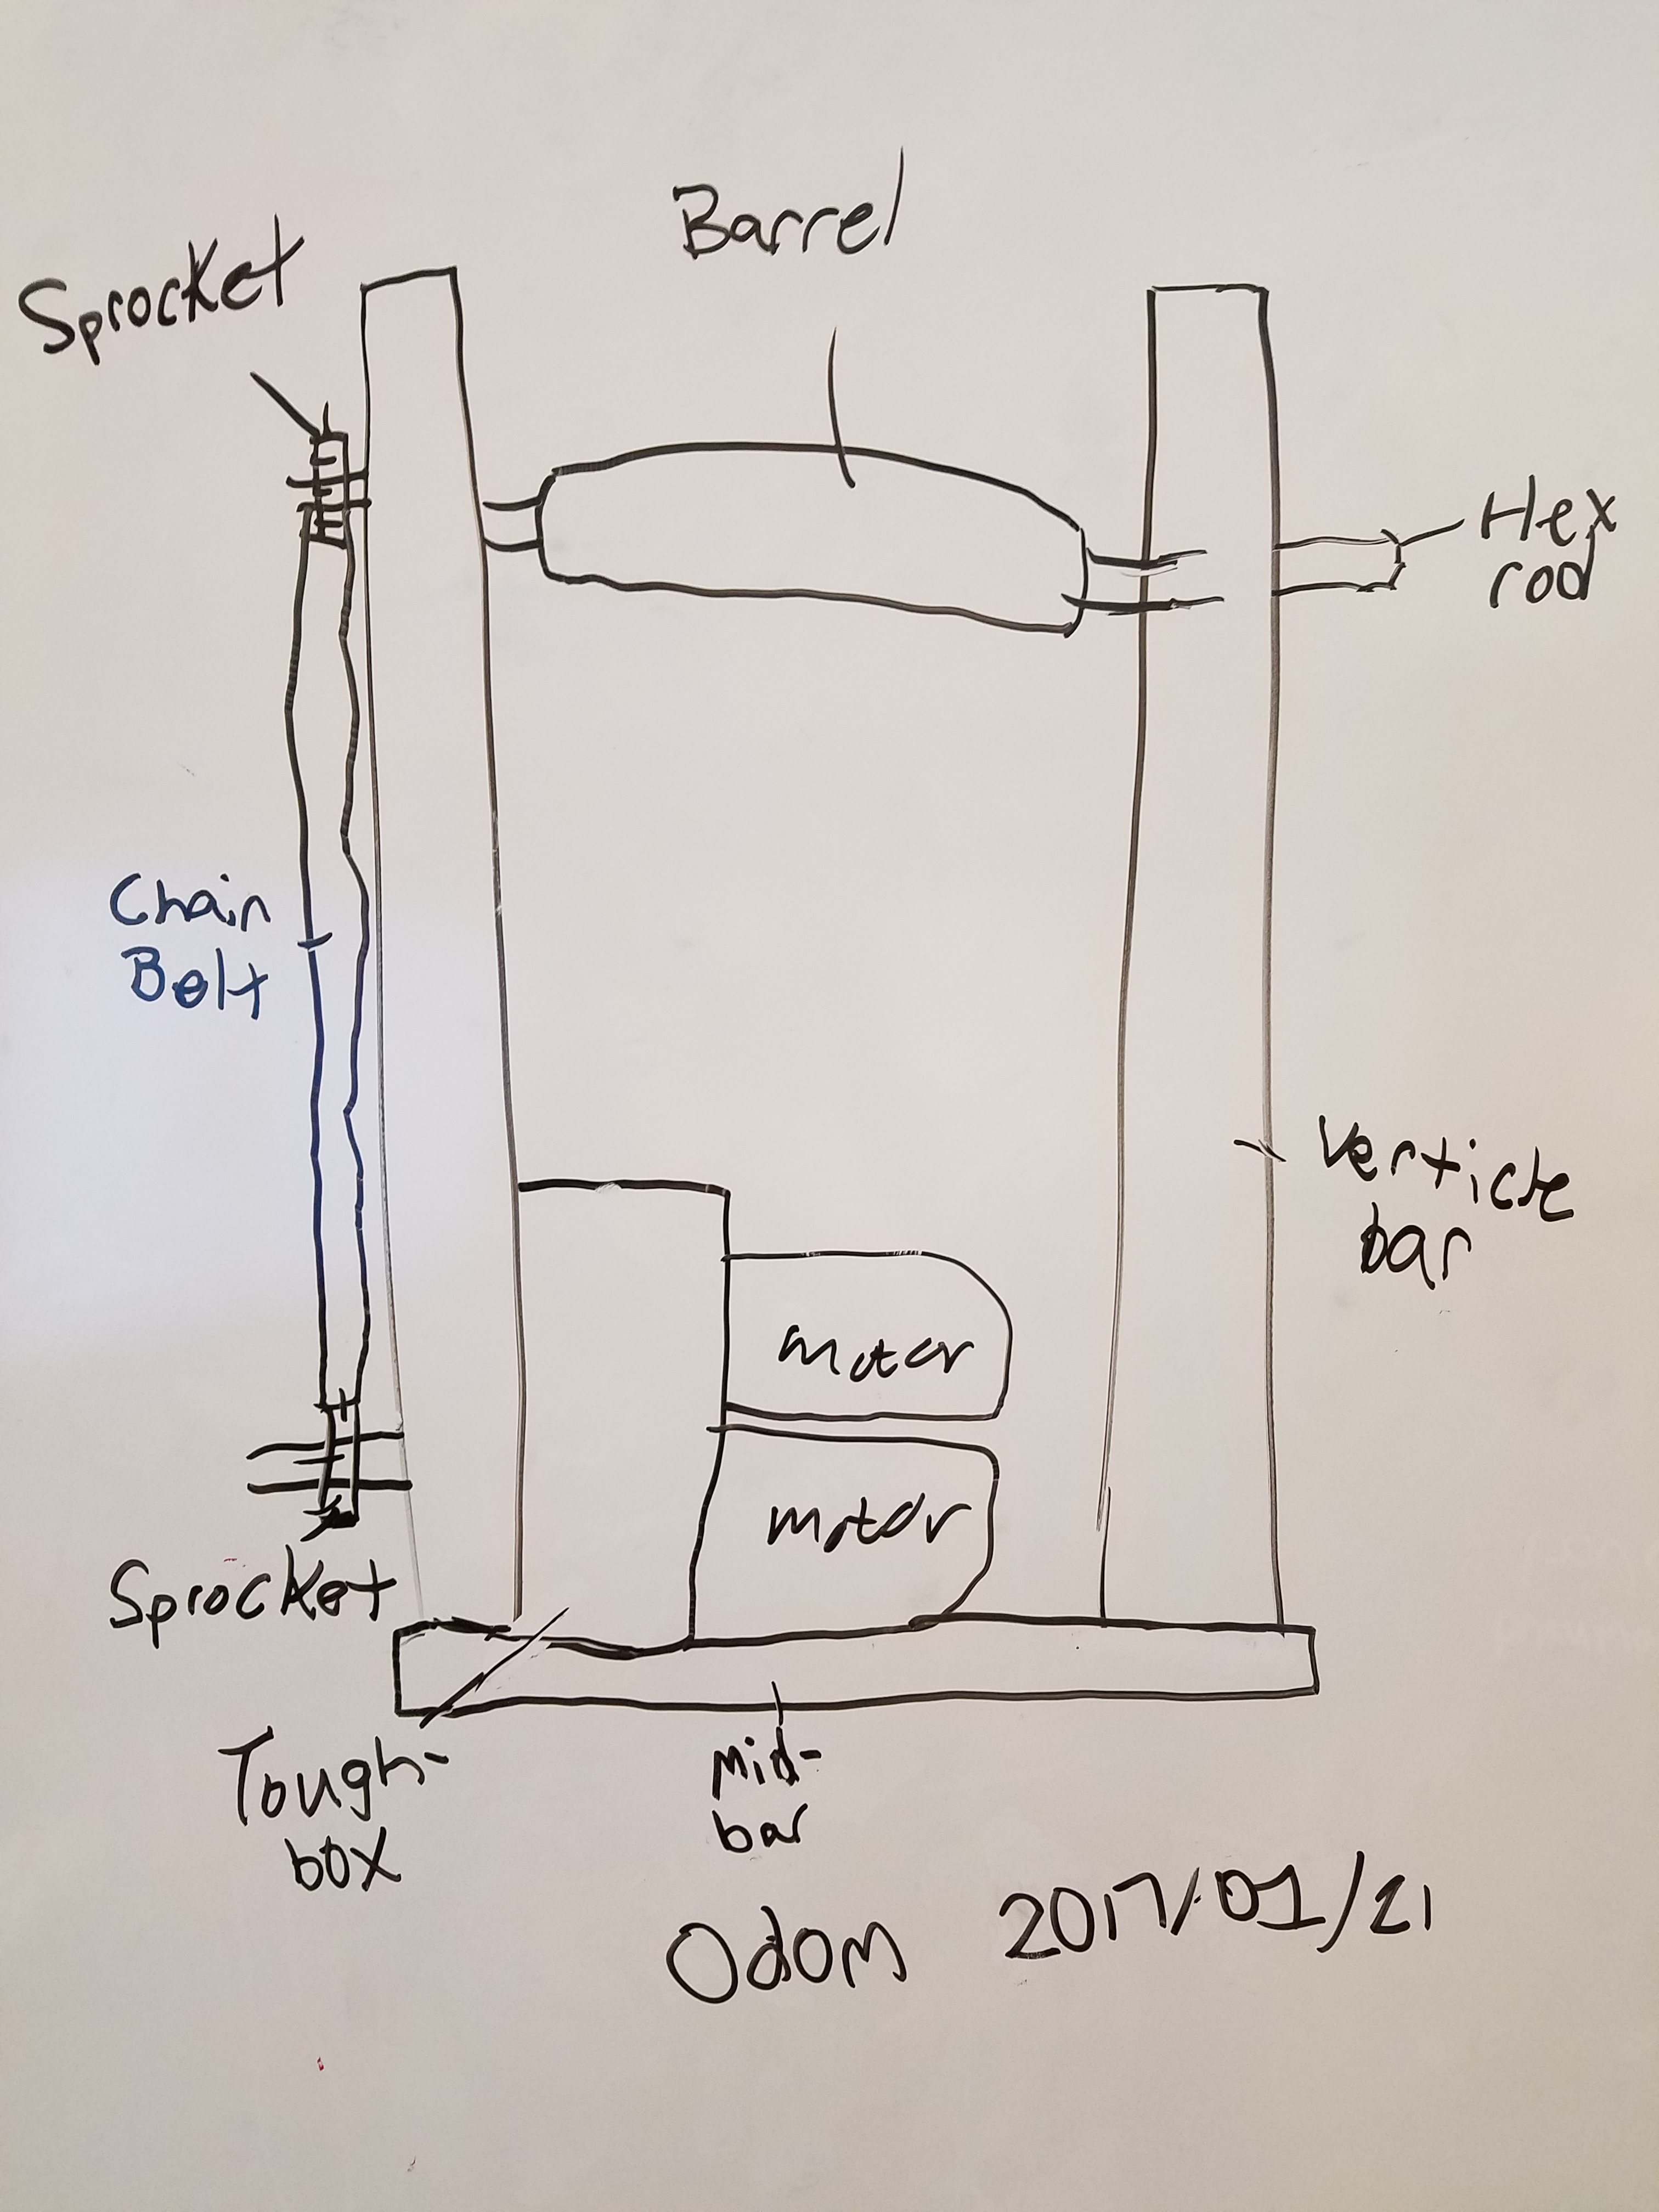 Barrel
Sprocket
Hex
rod
Chain
Belt
Verticle
bar
motor
motor
Sprocket
Tough-
box
Mid-
bar
Odom 2017/01/21